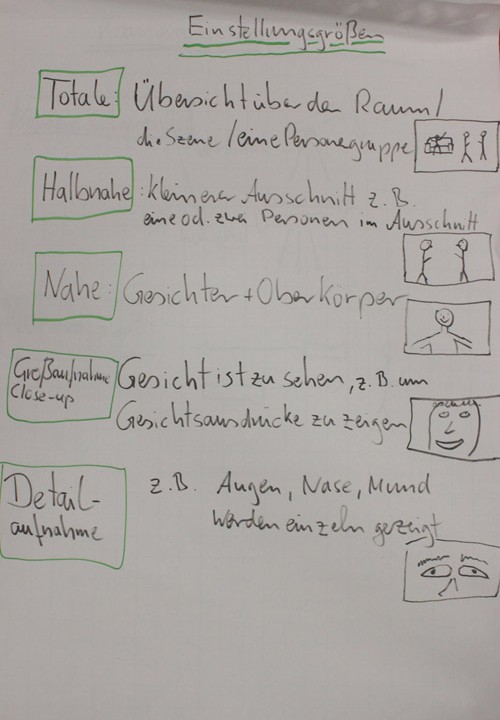 Einstellungsgrößen
Totale: Übersicht über den Raum/
die Szene / eine Personegruppe
Halbnahe: kleinerer Ausschnitt z.B.
eine od. zwei Personen im Ausschnitt
Nahe: Gesichter + Oberkörper
Großaufnahme Close-up
Gesicht ist zu sehen, z.B. um
Gesichtsausdrücke zu zeigen
Detail-
aufnahme
z.B. Augen, Nase, Mund
werden einzeln gezeigt